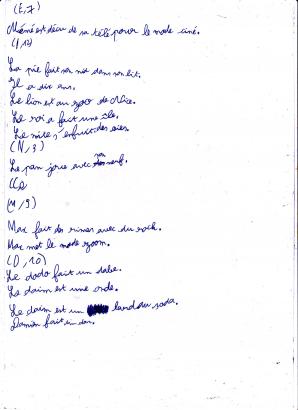 (E,7)
Mémé est déçu de sa télé pour le mode ciné.
(I,12)
La pie fait son nid dans son lit.
Il a dix ans.
Le lion est au zoo de Nice.
Le roi a fait une île.
Le s'enfuit des
(N,3)
Le paon joue avec son nerf.
(M,9)
Max fait des rimes avec du rock.
Max met le mode zoom.
(D,10)
Le dodo fait un
Le daim est une onde.
Le daim est un landau soda.
Damien fait un don.